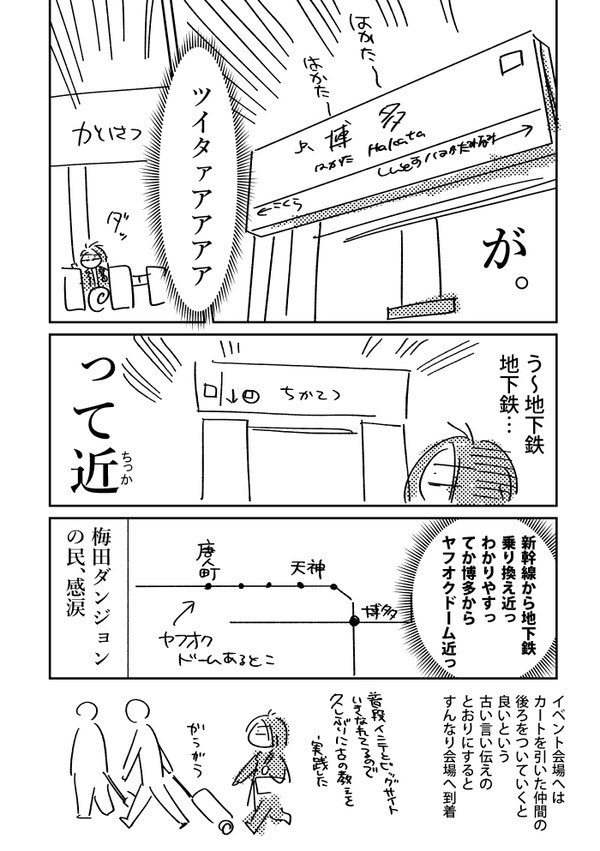 はかた〜
はかた〜
JR 博多
はかた Hakata
←こくら
ツイタァアアアアア
かいさつ
ダッ
が。
う〜地下鉄
地下鉄…
ちかてつ
って近
ちっか
新幹線から地下鉄
乗り換え近っ
わかりやすっ
てか博多から
ヤフオクドーム近っ
博多
天神
唐人町
ヤフオク
ドームあるとこ
梅田ダンジョン
の民、感涙
イベント会場へは
カートを引いた仲間の
後ろをついていくと
良いという
古い言い伝えの
とおりにすると
すんなり会場へ到着
普段インテとビッグサイト
いきなれてるので
久しぶりに古の教えを
実践した
がらがら